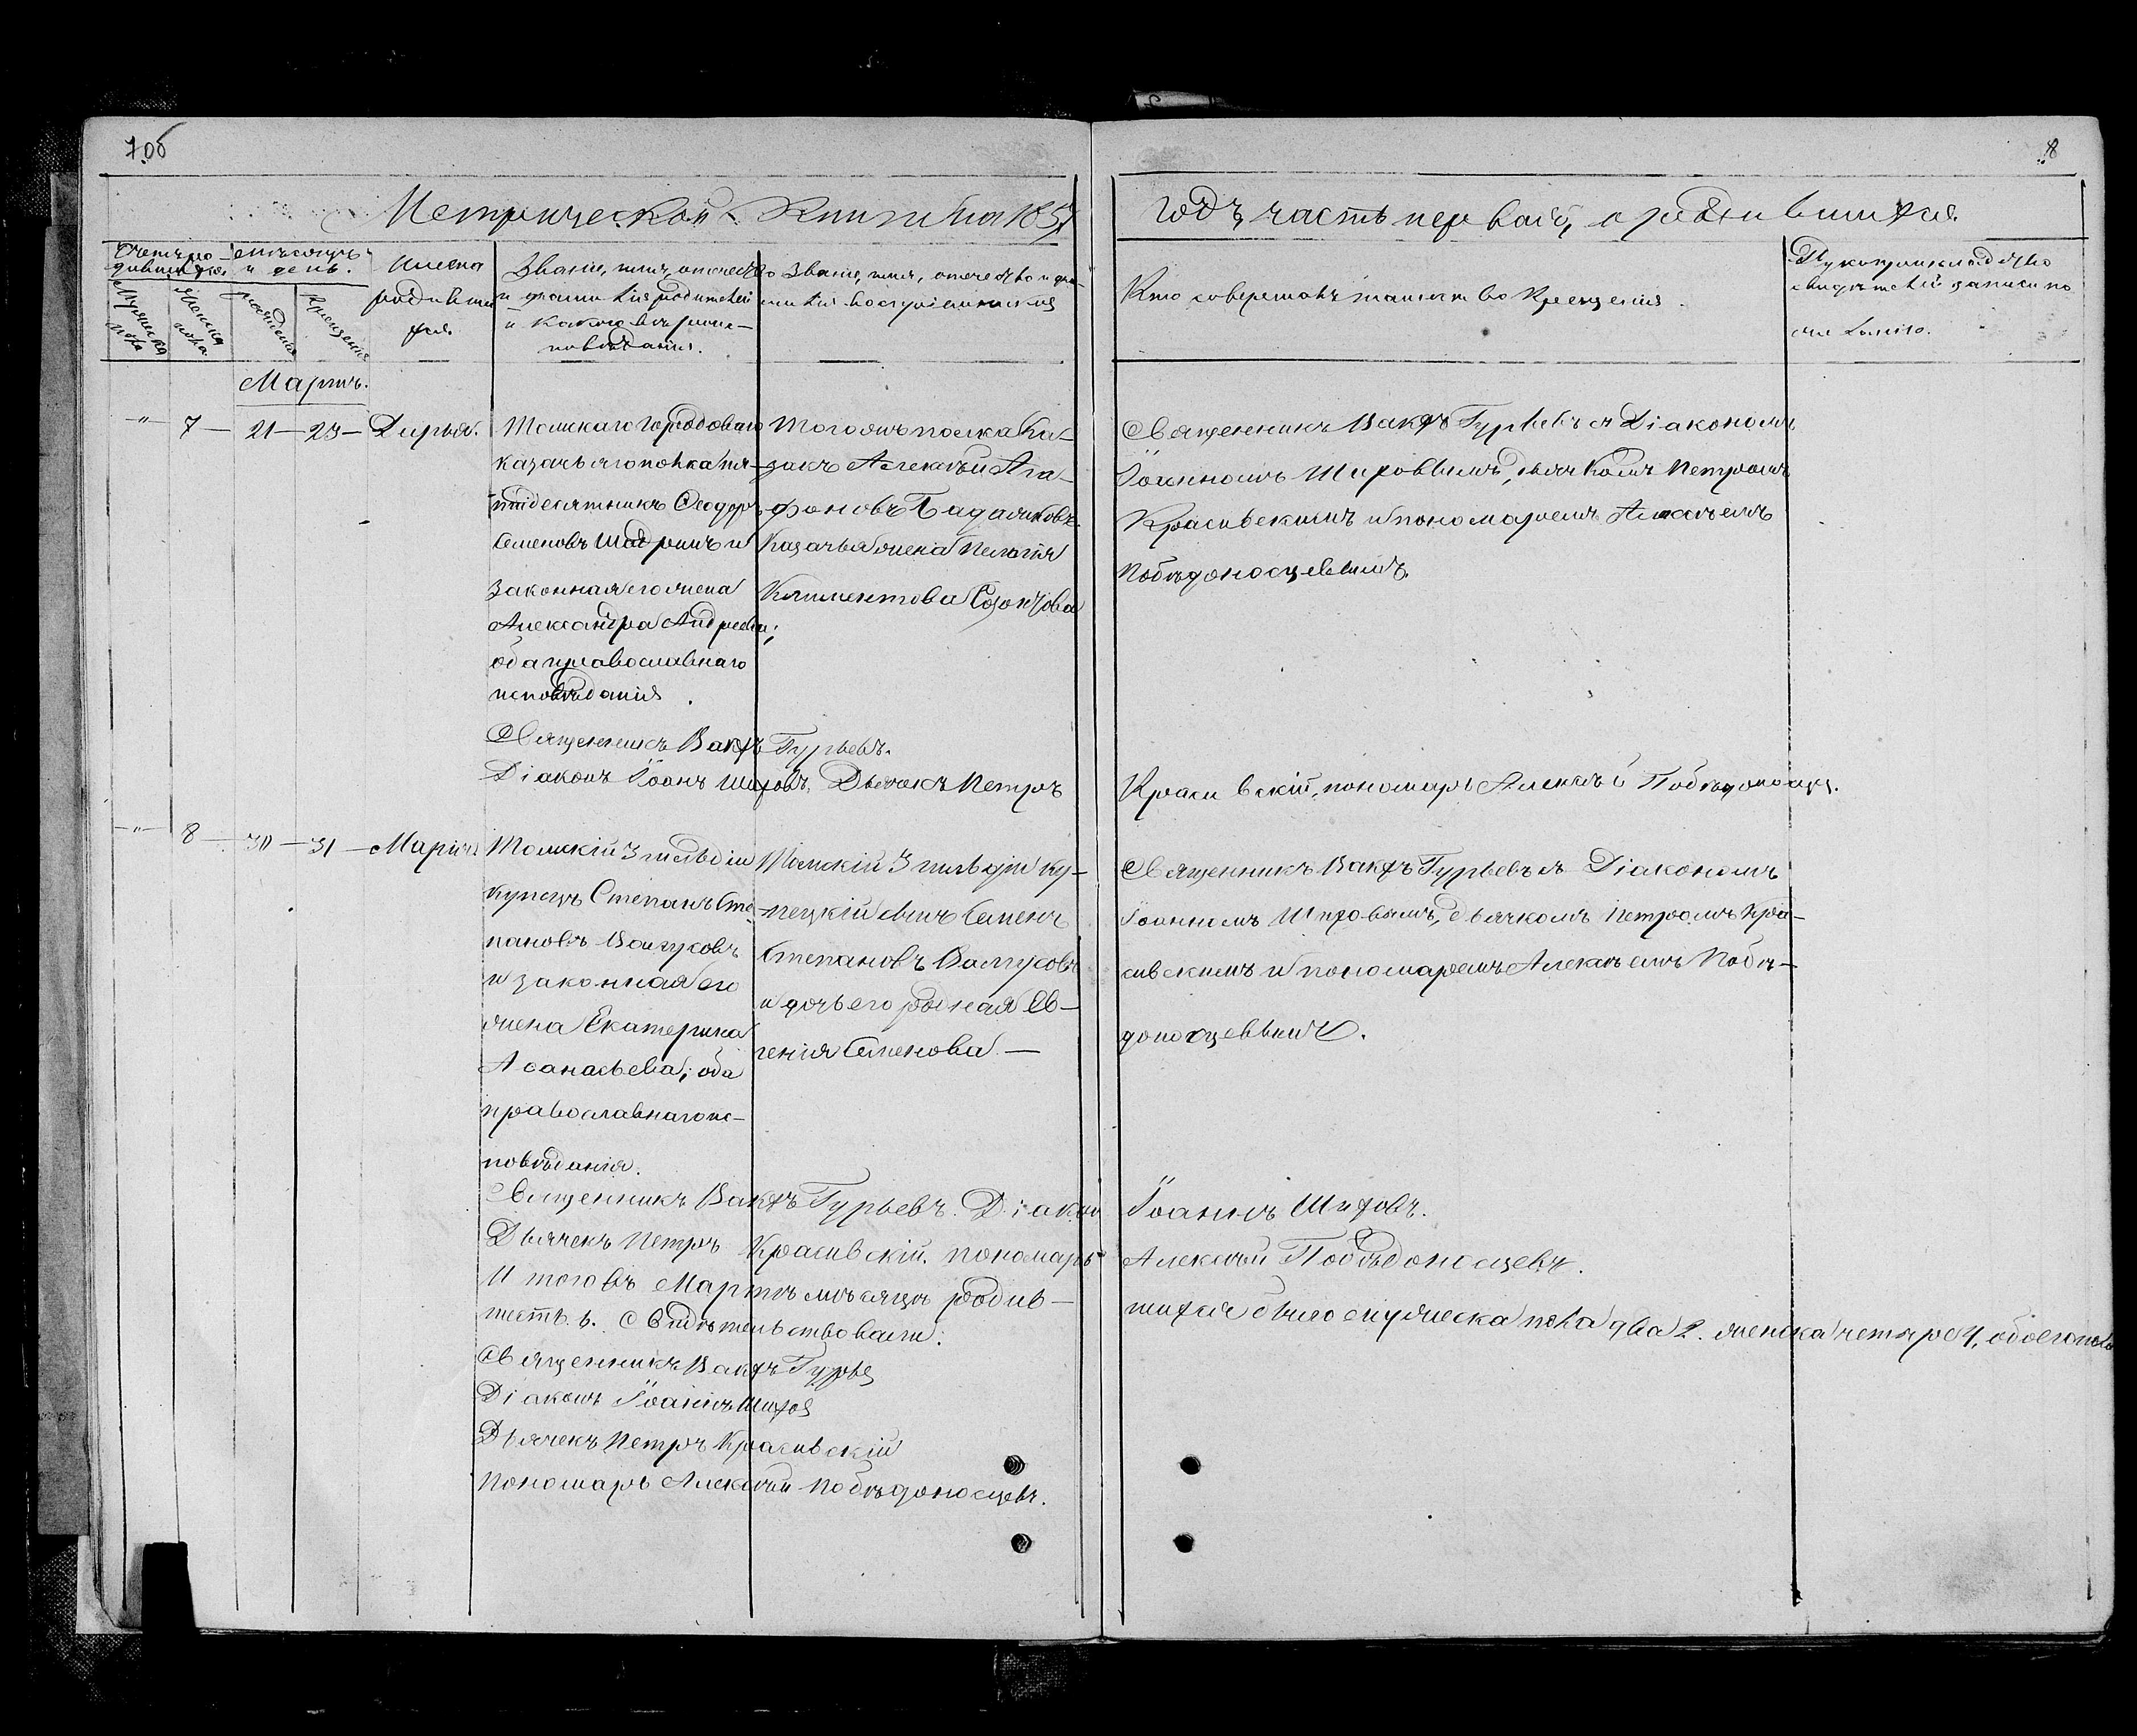 7об
8
Метрической Книги на 1857
годъ, часть первая, о родившихся.
Счетъ ро-
дившихся.
Мужеска
пола
Женска
пола
Мѣсяцъ
и день.
рожденія
Крещенія
Имена
родивших
ся.
Званіе, имя, отечество
и фамилія родителей
и какого вѣроис-
повѣданія.
Званіе, имя, отечество и фа-
милія воспріемниковъ
Кто совершалъ таинство Крещенія.
Рукоприкладство
свидѣтелей записи по
желанію.
Мартъ.
-"- 7 - 21 - 23 - Дарья.
Томскаго Городоваго
казачьяго полка пя-
тидесятникъ Ѳеодоръ
Семеновъ Шадринъ и
законная его жена
Александра Андреева;
оба православнаго
исповѣданія.
Тогожъ полка Ка-
закъ Алексѣй Ага-
фоновъ
Казачья жена Пелагія
Климентова
Священникъ Вакхъ Гурьевъ съ Діакономъ
Іоанномъ Шиховымъ, дьячкомъ Петромъ
Красивскимъ и пономаремъ Алексѣемъ
Побѣдоносцевымъ.
Священникъ Вакхъ Гурьевъ.
Діаконъ Іоанъ Шиховъ. Дьячекъ Петръ
Красивскій, пономарь Алексѣй Побѣдоносцевъ.
-"- 8 - 30 - 31 - Марія
Томскій 3 гильдіи
купецъ Степанъ Сте-
пановъ Валгусовъ
и законная его
жена Екатерина
Аѳанасьева; оба
православнаго ис-
повѣданія.
Томскій 3 гильдіи ку-
пецкій сынъ Семенъ
Степановъ Валгусовъ
и дочь его родная Ев-
генія Семенова. -
Священникъ Вакхъ Гурьевъ съ Діакономъ
Іоанномъ Шиховымъ, дьячкомъ Петромъ Кра-
сивскимъ и пономаремъ Алексѣемъ Побѣ-
доносцевымъ.
Священникъ Вакхъ Гурьевъ. Діаконъ
Іоаннъ Шиховъ.
Дьячекъ Петръ Красивскій. пономарь
Алексѣй Побѣдоносцевъ.
Итого въ Мартѣ мѣсяцѣ родив-
шихся было мужеска пола два 2. женска четыре 4, обоего пола
шесть 6. Свидѣтельствовали:
Священникъ Вакхъ Гурьев
Діаконъ Іоаннъ Шихов
Дьячекъ Петръ Красивскій
Пономарь Алексѣй Побѣдоносцевъ.